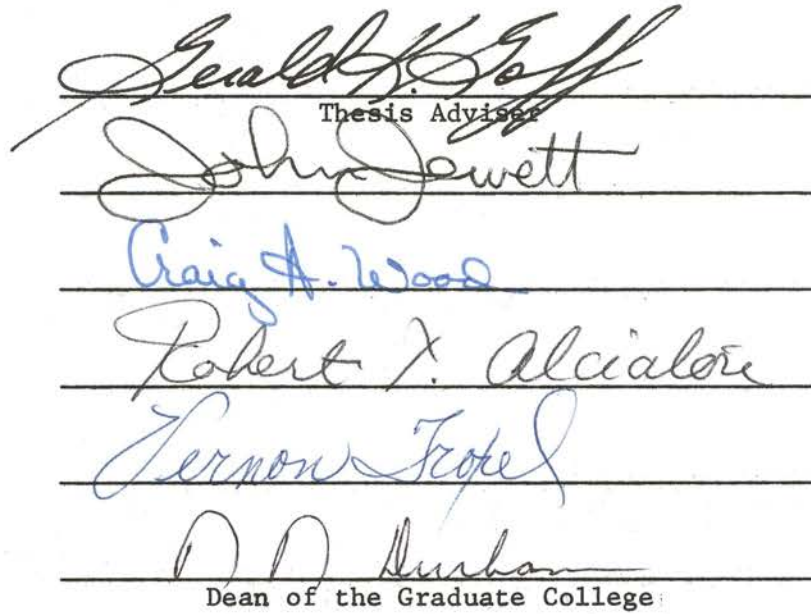 Gerald K. Goff
Thesis Adviser
John Jewett
Craig A. Wood
Robert
Vernon Troxel
N N Durham
Dean of the Graduate College